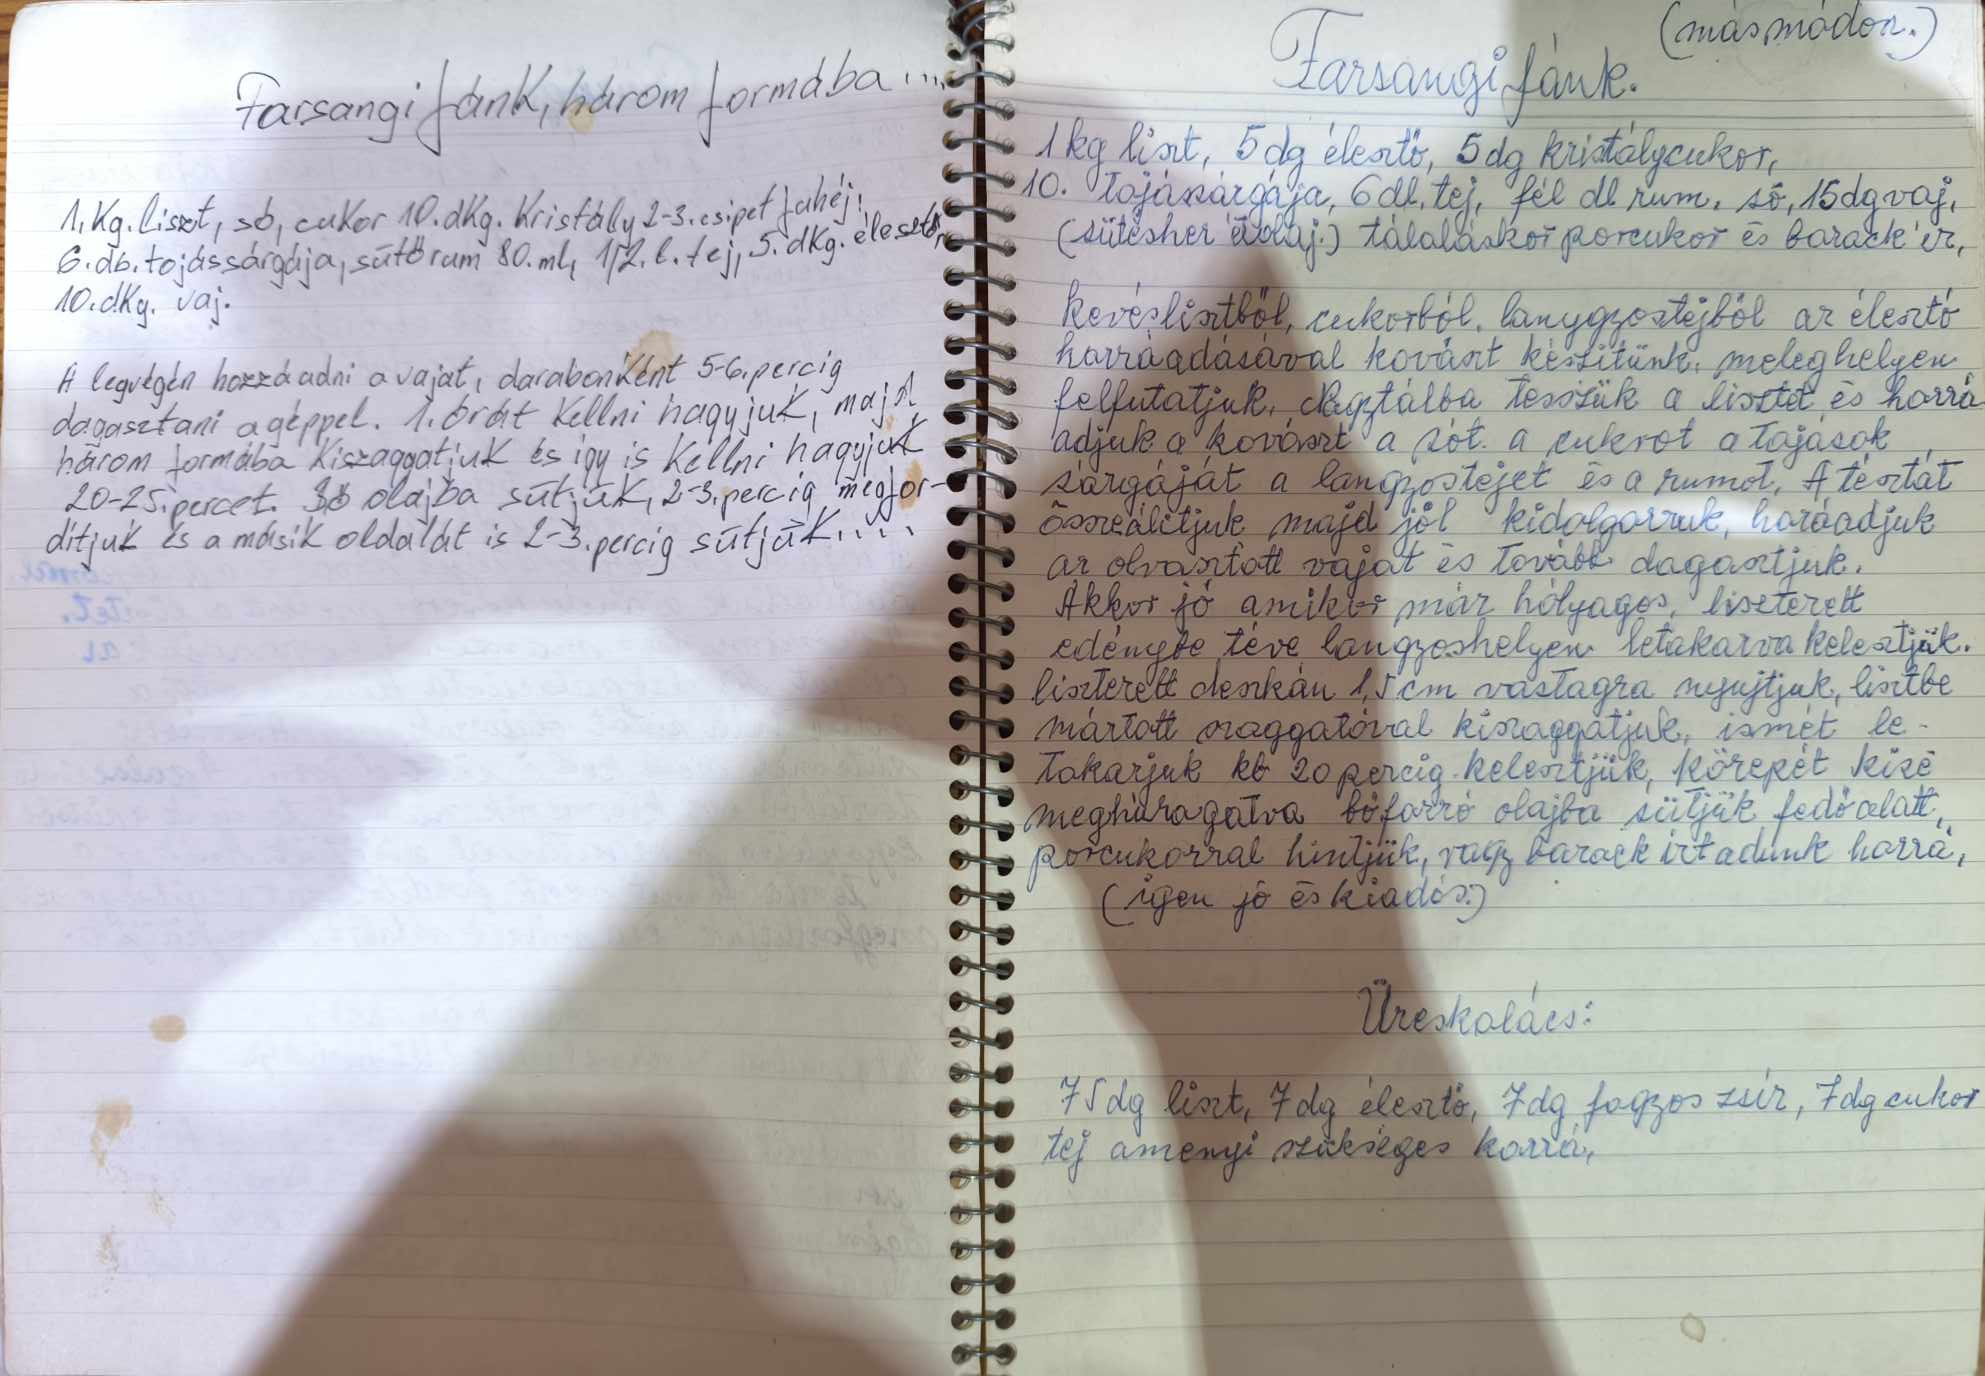 Farsangi fánk, három formába....
1. kg. liszt, só, cukor 10. dkg. kristály 2-3. csipet fahéj!
6. db. tojássárgája, sütőrum 80. ml, 1/2. l. tej, 5. dkg. élesztő,
10. dkg. vaj.
A legvégén hozzáadni a vajat, darabonként 5-6. percig
dagasztani a géppel. 1. órát kellni hagyjuk, majd
három formába kiszaggatjuk és így is kellni hagyjuk
20-25. percet. olajba sütjük, 2-3. percig megfor-
dítjuk és a másik oldalát is 2-3. percig sütjük....
(más módon.)
Farsangi fánk.
1 kg liszt, 5 dg élesztő, 5 dg kristálycukor,
10. tojássárgája, 6 dl. tej, fél dl rum, só, 15 dg vaj,
(sütéshez olaj.) tálaláskor porcukor és barack íz,
kevés lisztből, cukorból, langyostejből az élesztő
hozzáadásával kovászt készítünk, meleghelyen
felfutatjuk, Nagytálba tesszük a lisztet és hozzá
adjuk a kovászt a sót. a cukrot a tojások
sárgáját a langyostejet és a rumot, A tésztát
összeálitjuk majd jól kidolgozzuk, hozáadjuk
az olvasztott vajat és tovább dagasztjuk.
Akkor jó amikor már hólyagos, lisztezett
edénybe téve langyoshelyen letakarva kelesztjük.
lisztezett deszkán 1,5 cm vastagra nyujtjuk, lisztbe
mártott szaggatóval kiszaggatjuk, ismét le-
takarjuk kb 20 percig kelesztjük, közepét kisé
meghúzogatva bőforró olajba sütjük fedőalatt,
porcukorral hintjük, vagy barack ízt adunk hozzá,
(igen jó és kiadós.)
Üreskalács:
75 dg liszt, 7 dg élesztő, 7 dg fagyos zsír, 7 dg cukor
tej amenyi szükséges hozzá,